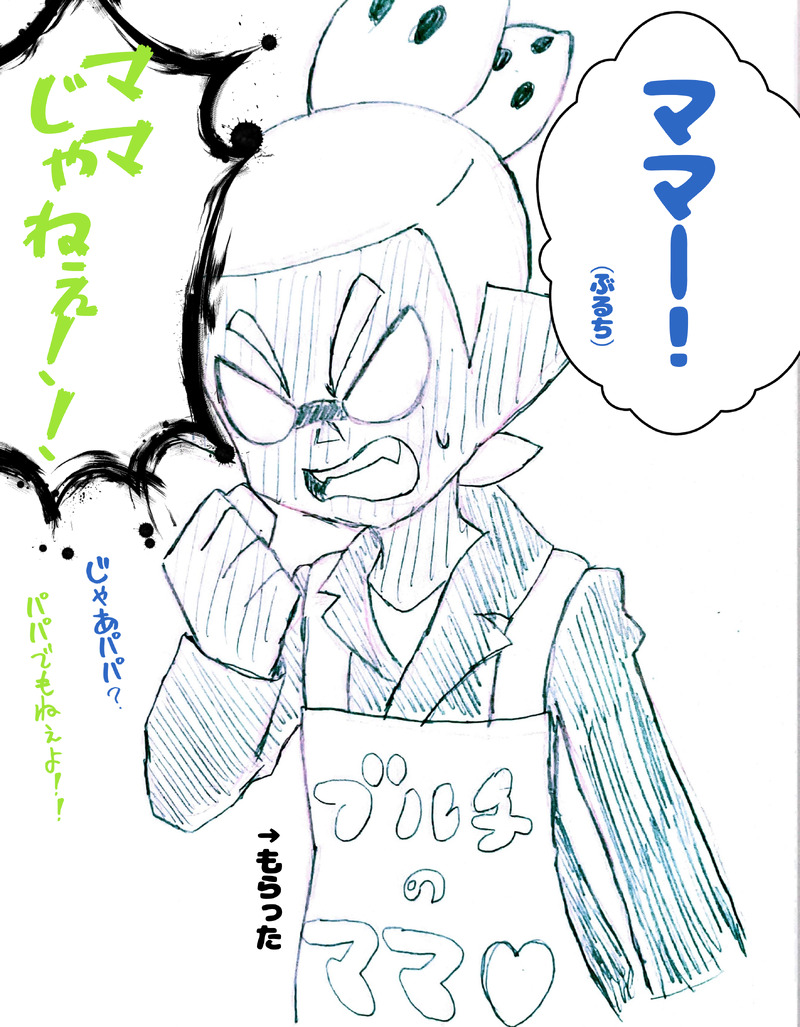 ママー！
（ぶるち）
ママ
じゃ
ねぇー！！
じゃあパパ？
パパでもねぇよ！！
→もらった
ブルチ
の
ママ♡